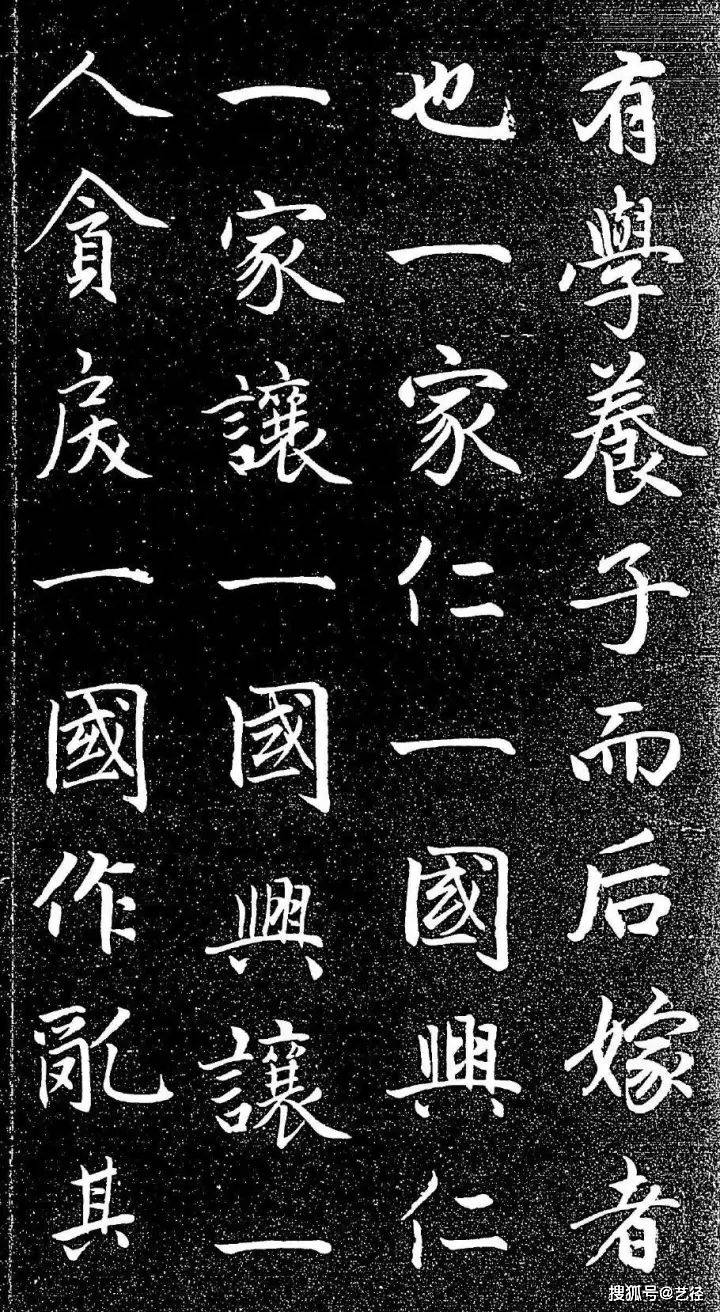 有學養子而后嫁者
也一家仁一國興仁
一家讓一國興讓一
人貪戾一國作亂其
搜狐号@艺径